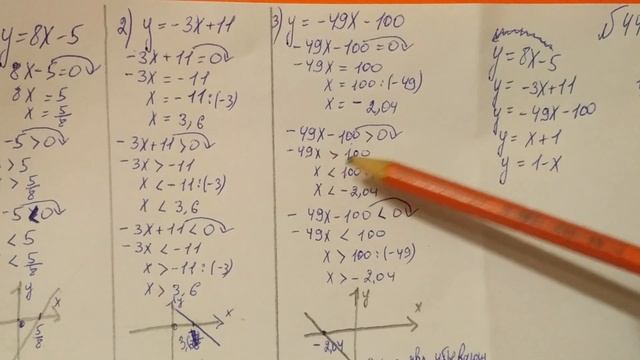 y=8x-5
8x-5=0
8x=5
x=5/8
-5>0
>5
> 5/8
-5<0
<5
< 5/8
y
x
5/8
2) y=-3x+11
-3x+11=0
-3x=-11
x=-11:(-3)
x=3,6
-3x+11>0
-3x>-11
x<-11:(-3)
x<3,6
-3x+11<0
-3x<-11
x>-11:(-3)
x>3,6
y
x
0
3) y=-49x-100
-49x-100=0
-49x=100
x=100:(-49)
x=-2,04
-49x-100>0
-49x>100
x<100
x<-2,04
-49x-100<0
-49x<100
x>100:(-49)
x>-2,04
y
x
-2,04
y=8x-5
y=-3x+11
y=-49x-100
y=x+1
y=1-x